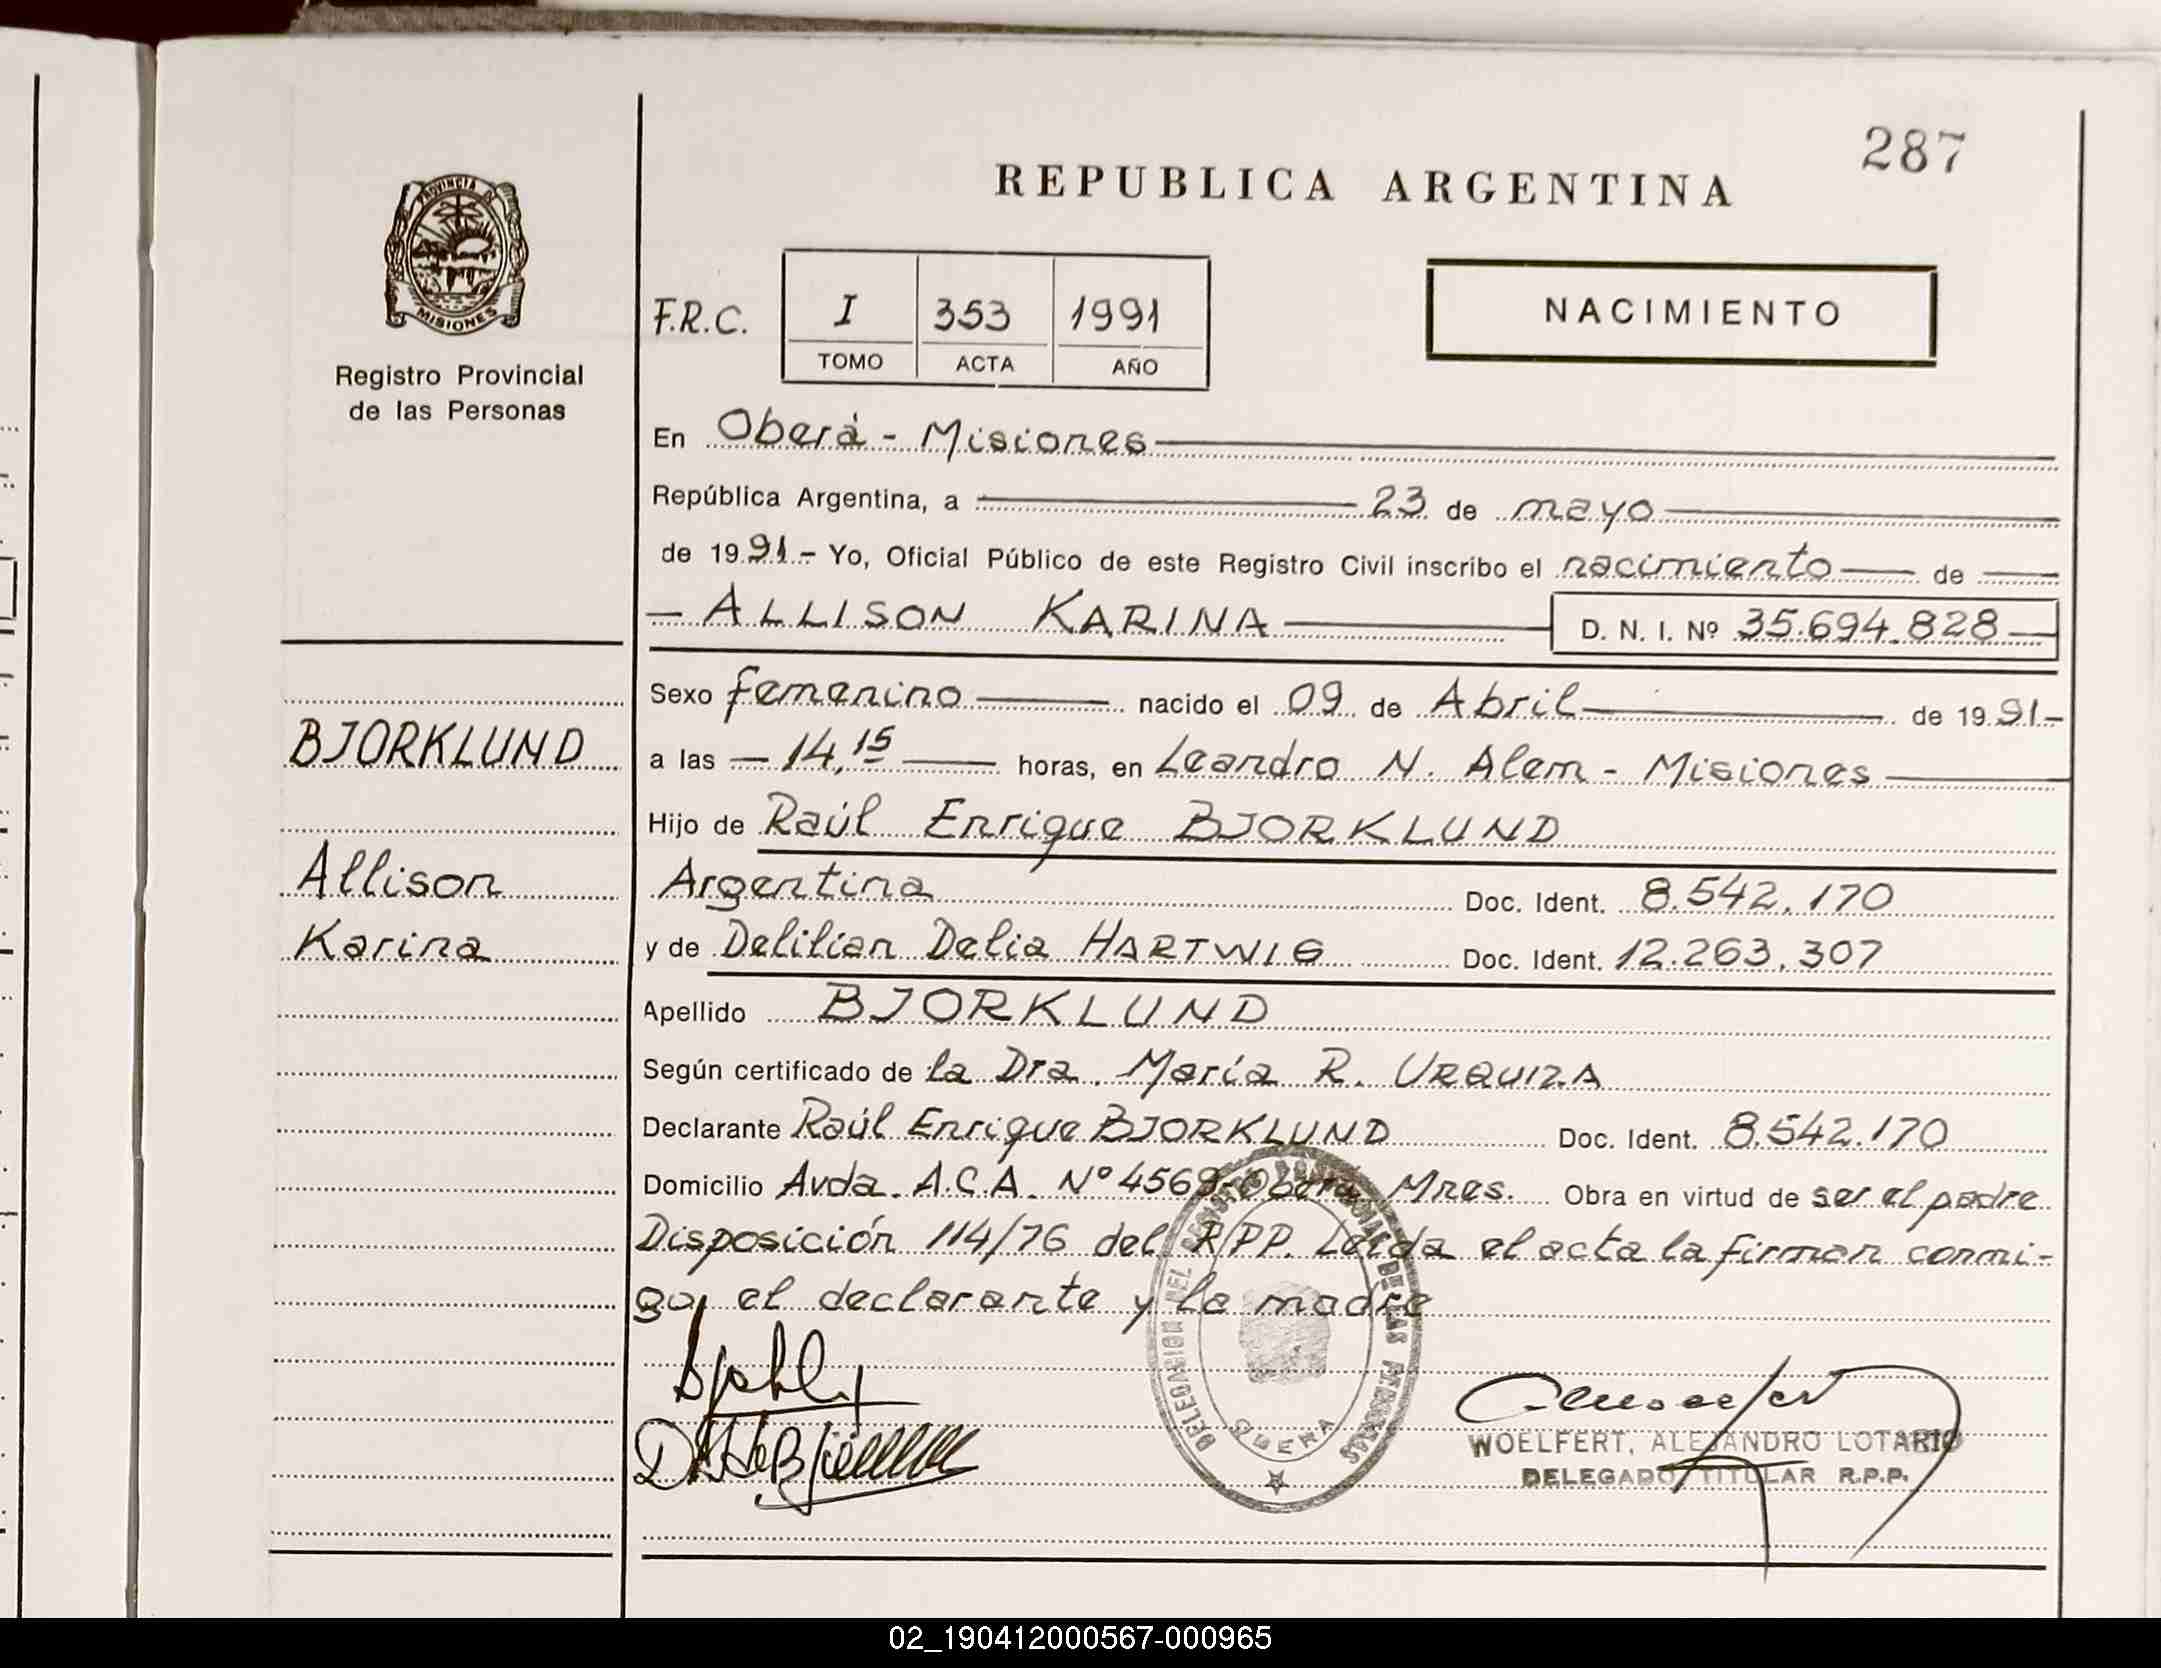 287
REPUBLICA ARGENTINA
PROVINCIA DE
MISIONES
Registro Provincial
de las Personas
F.R.C.
I 353 1991
TOMO ACTA AÑO
NACIMIENTO
En Oberá - Misiones
República Argentina, a 23 de mayo
de 1991.- Yo, Oficial Público de este Registro Civil inscribo el nacimiento de
- ALLISON KARINA D. N. I. Nº 35.694.828
Sexo femenino nacido el 09 de Abril de 1991.-
BJORKLUND
a las - 14,15 horas, en Leandro N. Alem - Misiones
Hijo de Raúl Enrique BJORKLUND
Allison
Argentina Doc. Ident. 8.542.170
Karina
y de Delilian Delia HARTWIG Doc. Ident. 12.263.307
Apellido BJORKLUND
Según certificado de la Dra. María R. URQUIZA
Declarante Raúl Enrique BJORKLUND Doc. Ident. 8.542.170
Domicilio Avda. A.C.A. Nº 4569-Oberá Mnes. Obra en virtud de ser el padre
Disposición 114/76 del RPP. Leída el acta la firman conmi-
go, el declarante y la madre
DELEGACION DEL REGISTRO PROVINCIAL DE LAS PERSONAS
OBERA
WOELFERT, ALEJANDRO LOTARIO
DELEGADO TITULAR R.P.P.
02_190412000567-000965